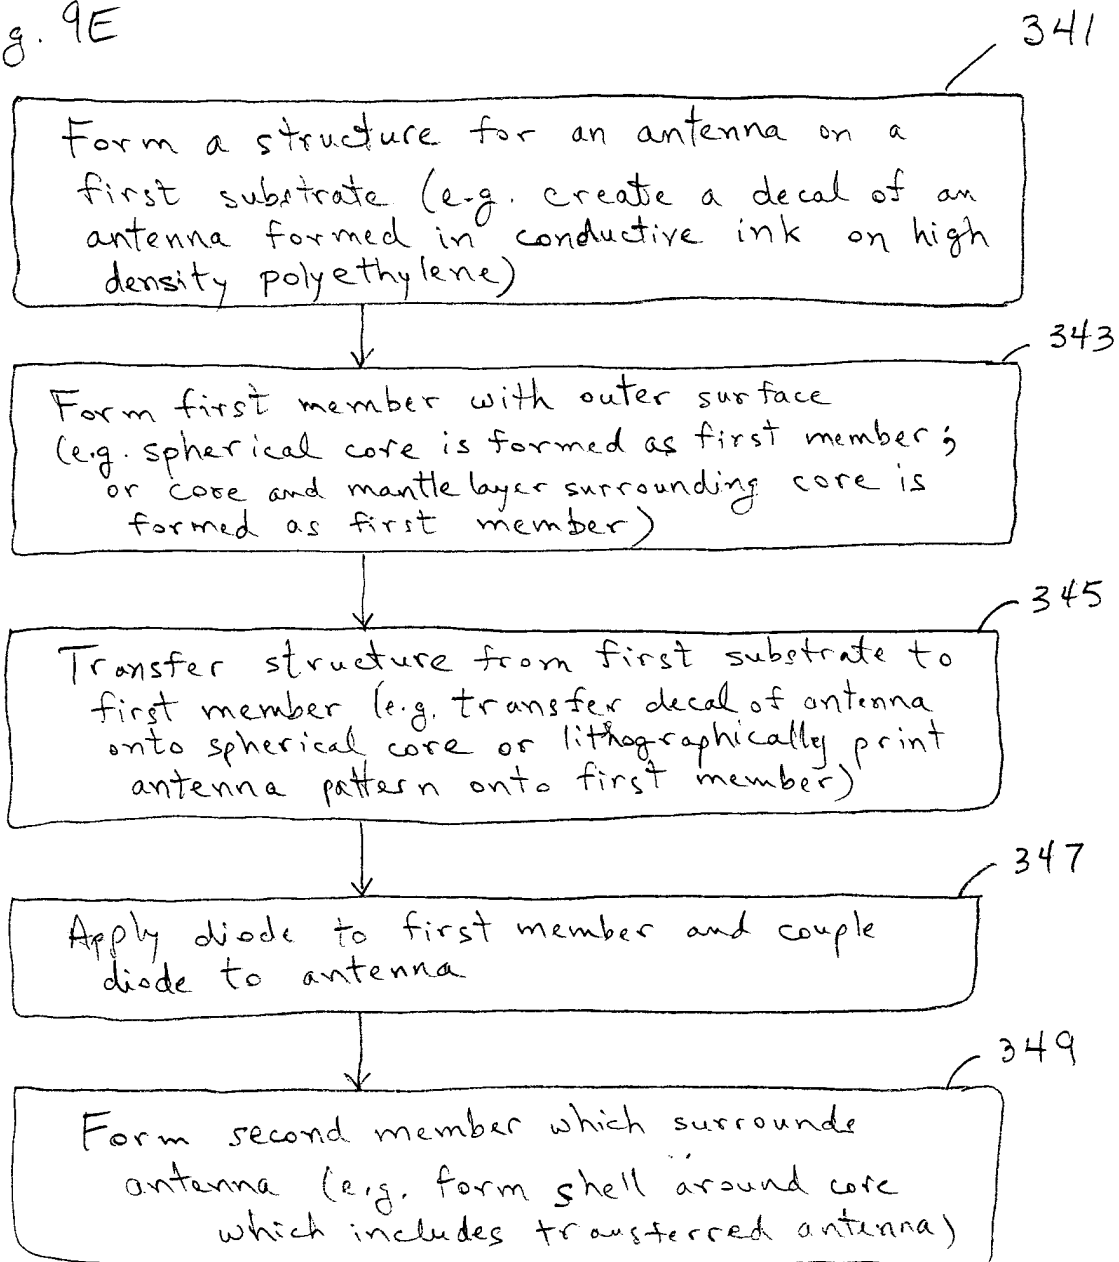 g. 9E
341
Form a structure for an antenna on a
first substrate (e.g. create a decal of an
antenna formed in conductive ink on high
density polyethylene)
343
Form first member with outer surface
(e.g. spherical core is formed as first member;
or core and mantle layer surrounding core is
formed as first member)
345
Transfer structure from first substrate to
first member (e.g. transfer decal of antenna
onto spherical core or lithographically print
antenna pattern onto first member)
347
Apply diode to first member and couple
diode to antenna
349
Form second member which surrounds
antenna (e.g. form shell around core
which includes transferred antenna)